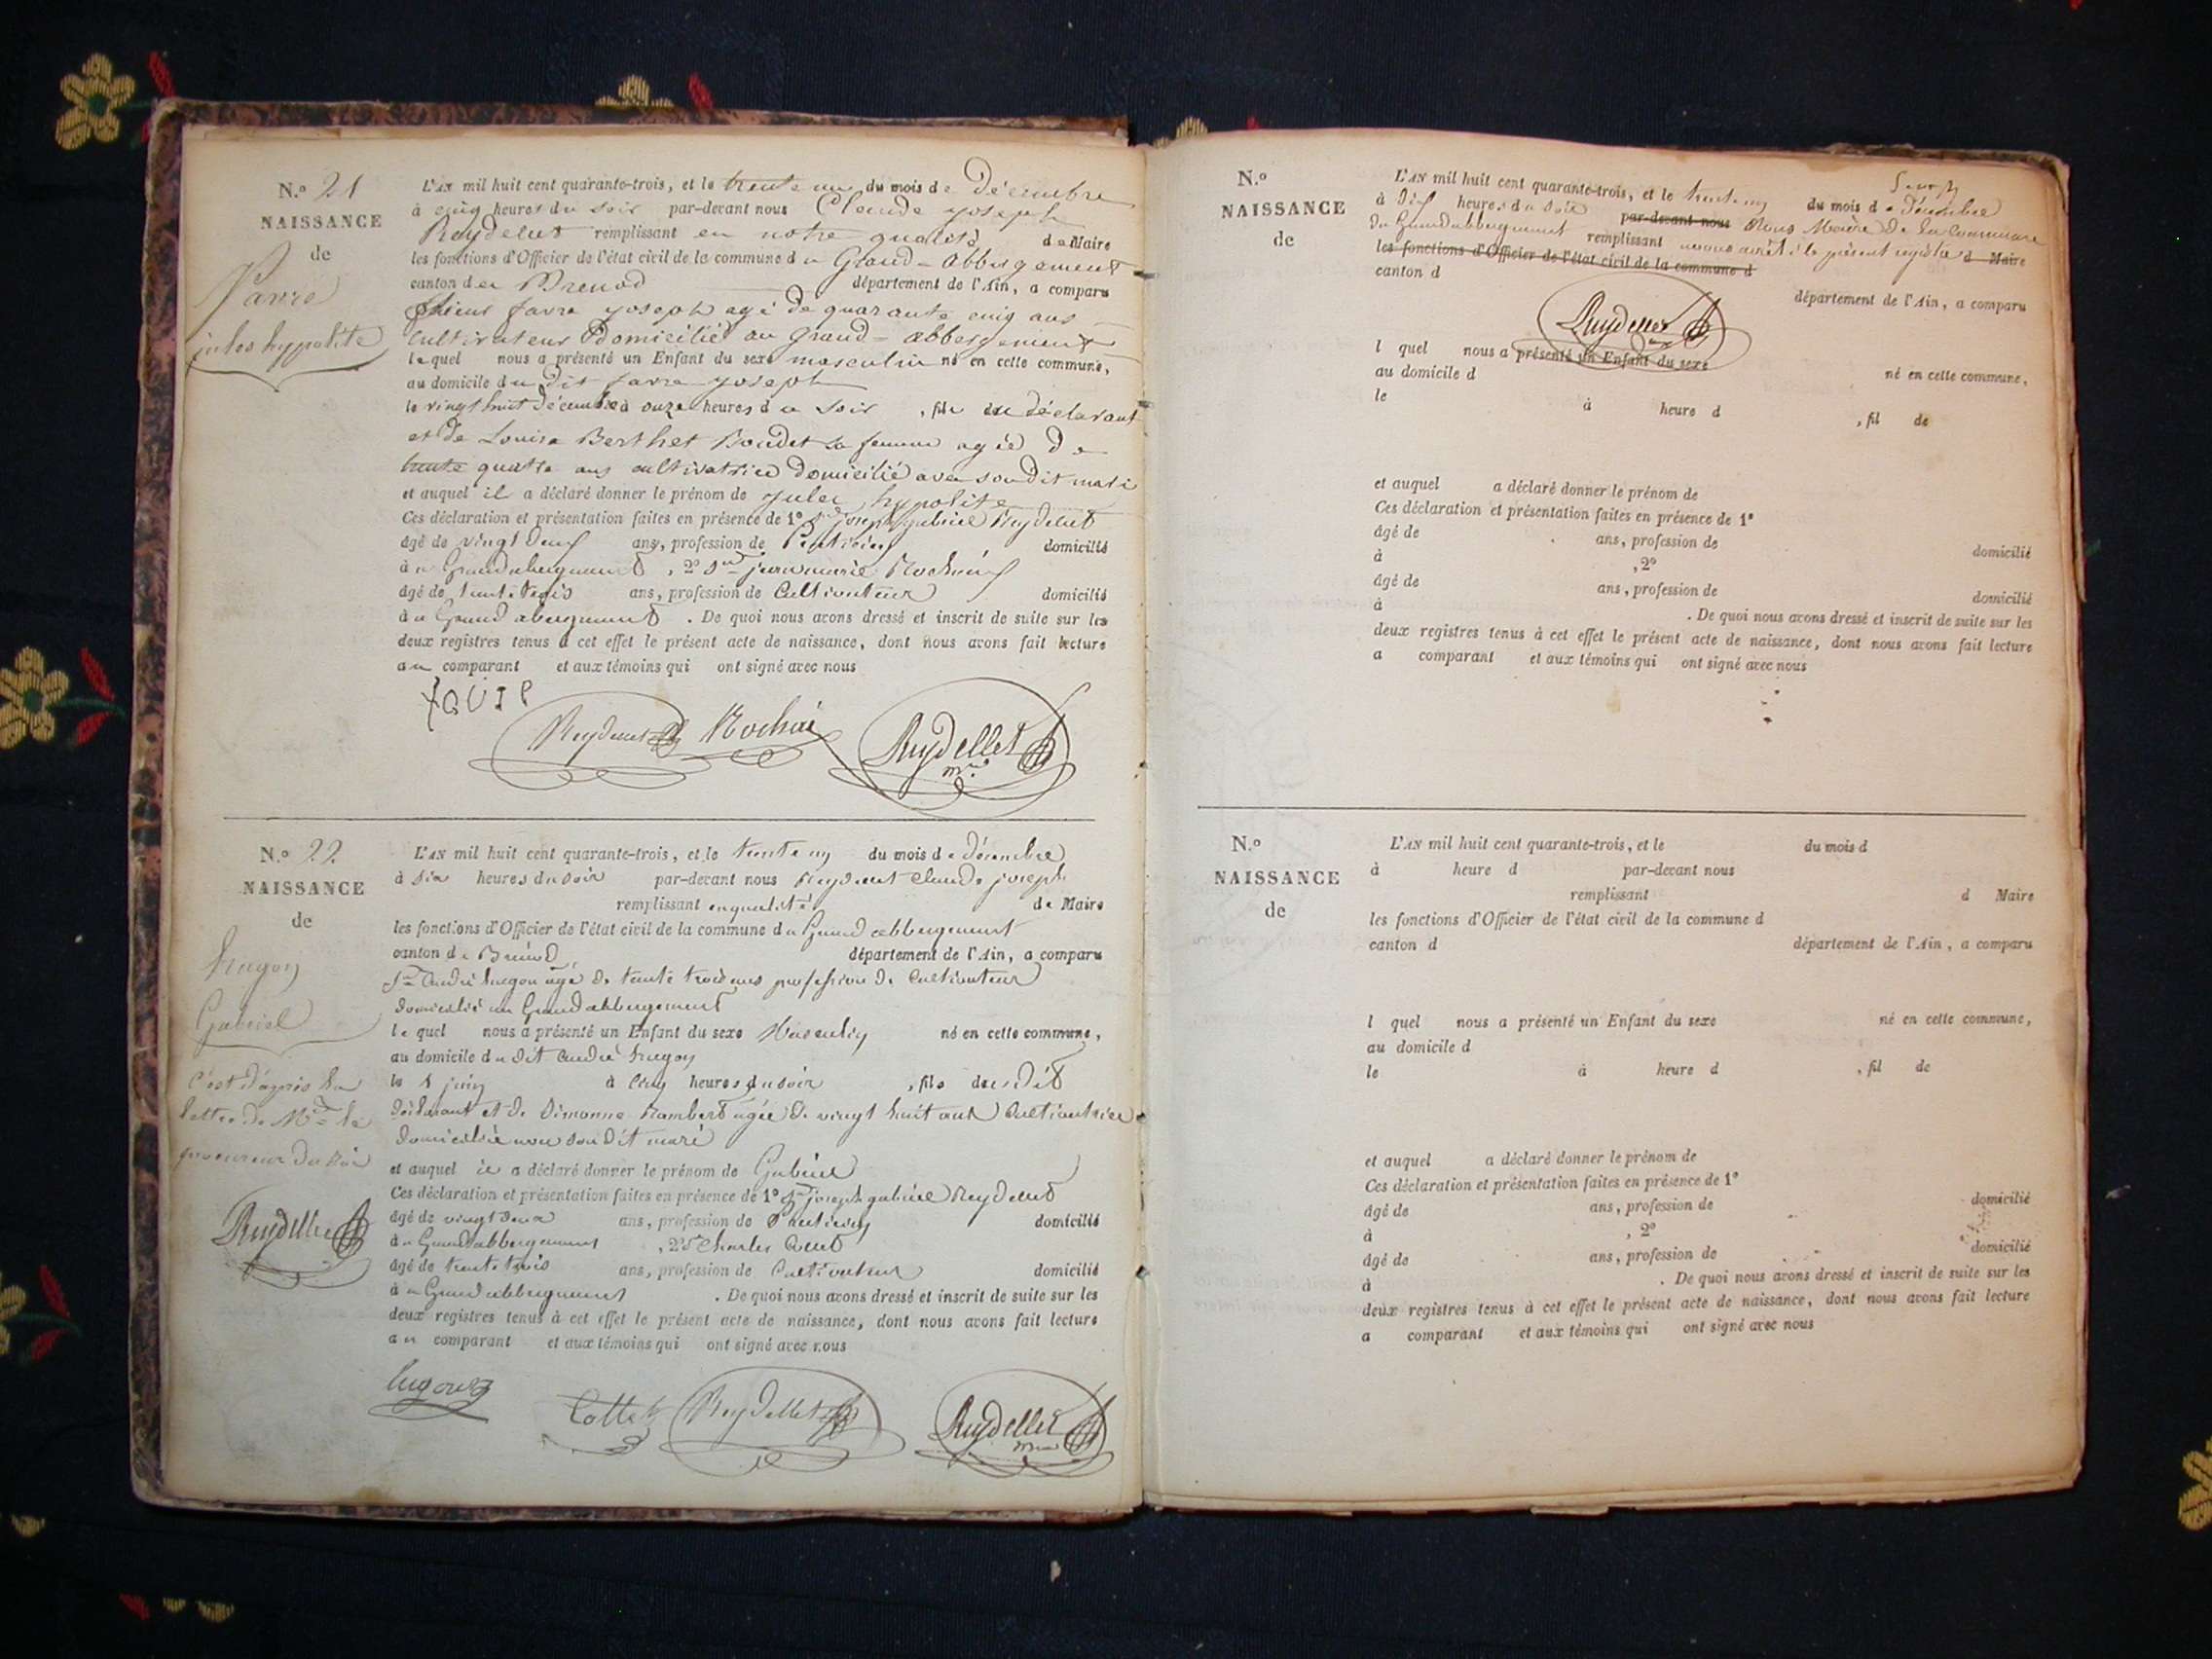 N.º 21
NAISSANCE
de
Favre
jules hyppolite
L'AN mil huit cent quarante-trois, et le trente un du mois de Décembre
à cinq heures du soir par-devant nous Claude joseph
Reydellet remplissant en notre qualité de Maire
les fonctions d'Officier de l'état civil de la commune du Grand-Abbergement
canton de Brenod département de l'Ain, a comparu
Sieur favre joseph agé de quarante cinq ans
Cultivateur Domicilié au Grand-abbergement
lequel nous a présenté un Enfant du sexe masculin né en cette commune,
au domicile du Dit favre joseph
le vingt huit décembre à onze heures du soir, fils du déclarant
et de Louise Berthet Bondet sa femme agée de
trente quatre ans cultivatrice Domicilié avec son dit mari
et auquel il a déclaré donner le prénom de jules hypolite
Ces déclaration et présentation faites en présence de 1º Sr joseph gabriel Reydellet
âgé de vingt deux ans, profession de domicilié
à u Grand abergement, 2º Sr jean marie Rochaix
âgé de trente trois ans, profession de Cultivateur domicilié
à u Grand abergement. De quoi nous avons dressé et inscrit de suite sur les
deux registres tenus à cet effet le présent acte de naissance, dont nous avons fait lecture
au comparant et aux témoins qui ont signé avec nous
Reydellet Rochaix Reydellet
mre
N.º 22
NAISSANCE
de
hugon
Gabriel
c'est d'après la
lettre de Mr le
procureur du Roi
Reydellet
L'AN mil huit cent quarante-trois, et le trente un du mois de décembre
à six heures du soir par-devant nous Reydellet Claude joseph
remplissant en qualité de Maire
les fonctions d'Officier de l'état civil de la commune du Grand abbergement
canton de Brénod département de l'Ain, a comparu
Sr André hugon agé de trente trois ans profession de Cultivateur
domicilié au Grand abbergement
lequel nous a présenté un Enfant du sexe Masculin né en cette commune,
au domicile du dit André hugon
le 1 juin à cinq heures du soir, fils du dit
déclarant et de Simonne Rambert agée de vingt huit ans Cultivatrice
domiciliée avec son dit mari
et auquel il a déclaré donner le prénom de Gabriel
Ces déclaration et présentation faites en présence de 1º Sr joseph gabriel Reydellet
âgé de vingt deux ans, profession de domicilié
à u Grand abbergement, 2º Sr Charles
âgé de trente trois ans, profession de Cultivateur domicilié
à u Grand abbergement. De quoi nous avons dressé et inscrit de suite sur les
deux registres tenus à cet effet le présent acte de naissance, dont nous avons fait lecture
au comparant et aux témoins qui ont signé avec nous
hugon
Collet Reydellet Reydellet
N.º
NAISSANCE
de
L'AN mil huit cent quarante-trois, et le trente un du mois de décembre
à dix heures du soir par-devant nous Nous Maire de la Commune
du Grand abbergement remplissant avons arrêté le présent registre d Maire
les fonctions d'Officier de l'état civil de la commune d
canton d département de l'Ain, a comparu
Reydellet
l quel nous a présenté un Enfant du sexe né en cette commune,
au domicile d
le à heure d , fil de
et auquel a déclaré donner le prénom de
Ces déclaration et présentation faites en présence de 1º
âgé de ans, profession de domicilié
à , 2º
âgé de ans, profession de domicilié
à . De quoi nous avons dressé et inscrit de suite sur les
deux registres tenus à cet effet le présent acte de naissance, dont nous avons fait lecture
a comparant et aux témoins qui ont signé avec nous
N.º
NAISSANCE
de
L'AN mil huit cent quarante-trois, et le du mois d
à heure d par-devant nous
remplissant d Maire
les fonctions d'Officier de l'état civil de la commune d
canton d département de l'Ain, a comparu
l quel nous a présenté un Enfant du sexe né en cette commune,
au domicile d
le à heure d , fil de
et auquel a déclaré donner le prénom de
Ces déclaration et présentation faites en présence de 1º
âgé de ans, profession de domicilié
à , 2º
âgé de ans, profession de domicilié
à . De quoi nous avons dressé et inscrit de suite sur les
deux registres tenus à cet effet le présent acte de naissance, dont nous avons fait lecture
a comparant et aux témoins qui ont signé avec nous